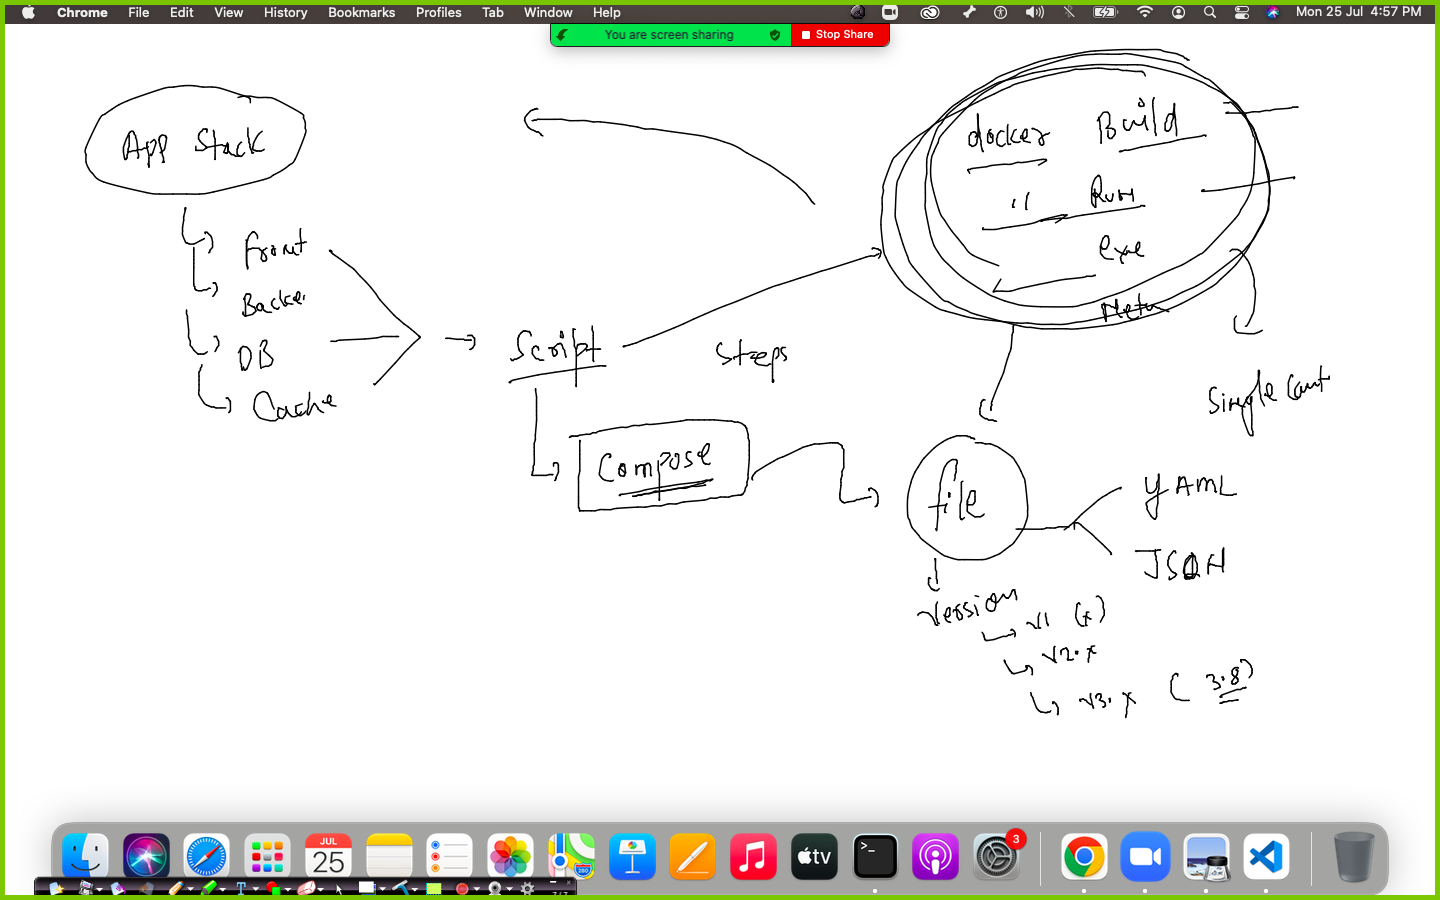 Chrome File Edit View History Bookmarks Profiles Tab Window Help Mon 25 Jul 4:57 PM
You are screen sharing Stop Share
App Stack
Front
Backe
DB
Cache
Script
Steps
Compose
docker Build
" Run
exe
Netw
Single Cont
file
YAML
JSON
Version
v1 (x)
v2.x
v3.x (3.8)
JUL
25
280
tv
>_
3